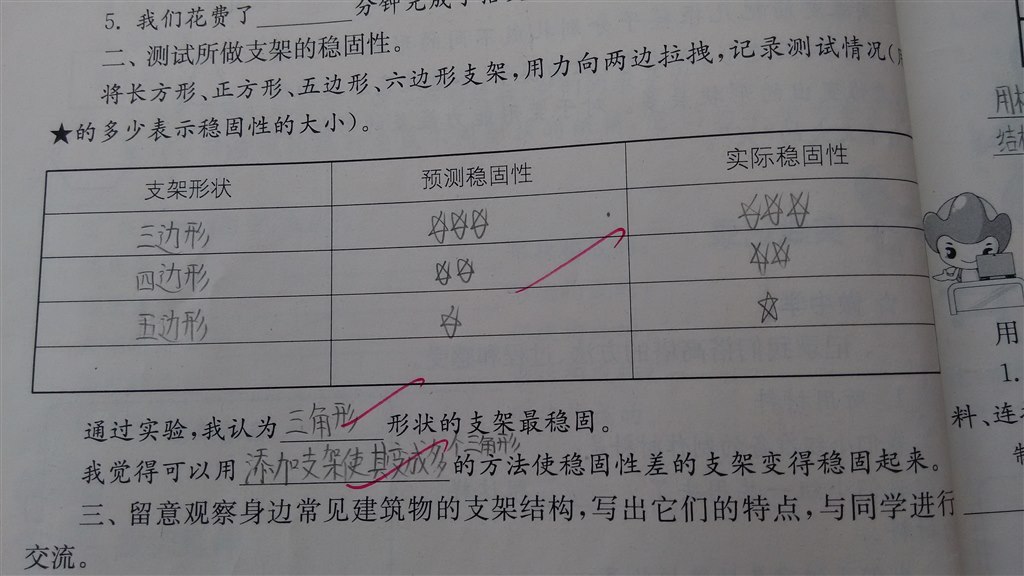 5. 我们花费了________分钟完成了
二、测试所做支架的稳固性。
将长方形、正方形、五边形、六边形支架，用力向两边拉拽，记录测试情况(
★的多少表示稳固性的大小)。
支架形状 预测稳固性 实际稳固性
三边形 ☆☆☆ ☆☆☆
四边形 ☆☆ ☆☆
五边形 ☆ ☆
通过实验，我认为三角形形状的支架最稳固。
我觉得可以用添加支架使其变成多个三角形的方法使稳固性差的支架变得稳固起来。
三、留意观察身边常见建筑物的支架结构，写出它们的特点，与同学进行
交流。
用
结
用
1.
料、连